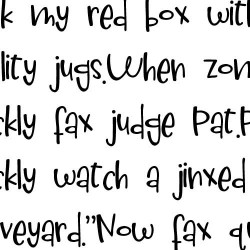 k my red box wit
lity jugs.When zon
ckly fax judge Pat.P
ckly watch a jinxed
veyard."Now fax qu